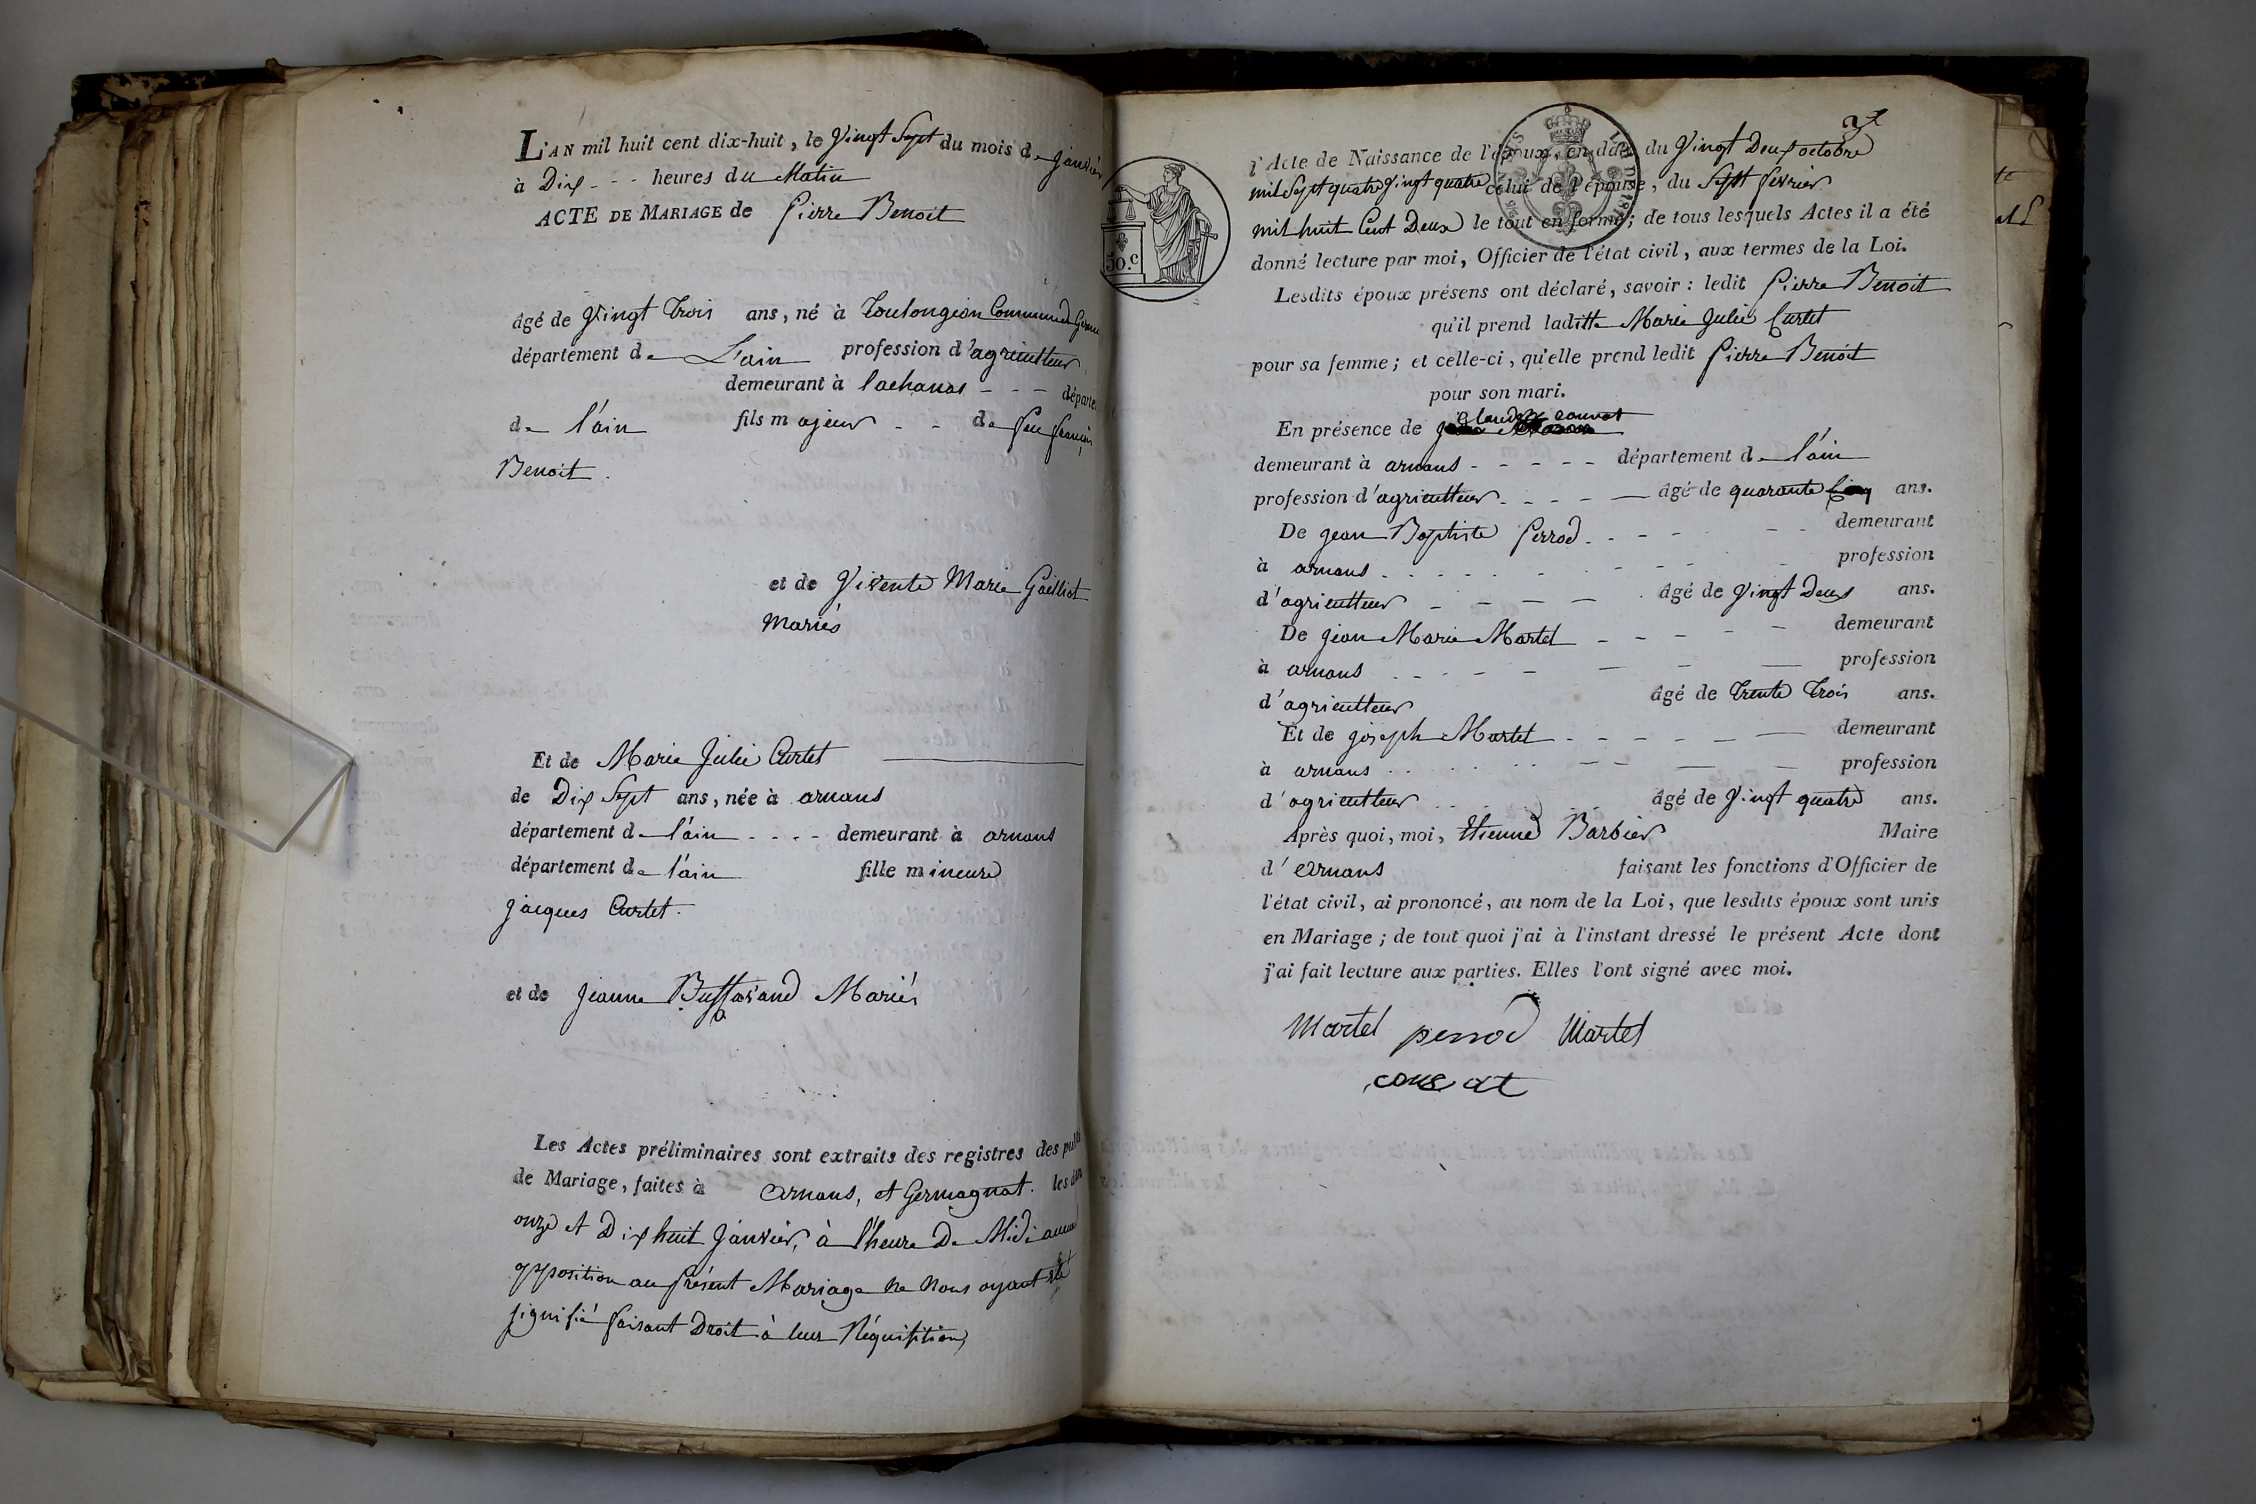 L'AN mil huit cent dix-huit, le Vingt Sept du mois de janvier
à Dix - - - heures du Matin
ACTE DE MARIAGE de Pierre Benoit
âgé de Vingt Trois ans, né à Toulongeon Commune de
département de L'ain profession d'agriculteur
demeurant à lachanas - - - départe
de l'ain fils majeur - - de feu françois
Benoit.
et de Vivente Marie Gailliot
Mariés
Et de Marie Julie Curtet
de Dix Sept ans, née à arnans
département de l'ain - - - - demeurant à arnans
département de l'ain fille mineure
jacques Curtet.
et de jeanne Buffavand Mariés
Les Actes préliminaires sont extraits des registres des publi
de Mariage, faites à arnans, et Germagnat. les
onze et Dix huit janvier, à l'heure De Midi aucune
opposition au présent Mariage ne nous ayant été
signifié faisant Droit à leur Réquisition,
50.c
l'Acte de Naissance de l'époux, en date du Vingt Deux octobre
mil Sept quatre Vingt quatre celui de l'épouse, du Sept fevrier
mil huit Cent Deux le tout en forme; de tous lesquels Actes il a été
donné lecture par moi, Officier de l'état civil, aux termes de la Loi.
Lesdits époux présens ont déclaré, savoir : ledit Pierre Benoit
qu'il prend laditte Marie Julie Curtet
pour sa femme; et celle-ci, qu'elle prend ledit Pierre Benoit
pour son mari.
En présence de Claude
demeurant à arnans - - - - - département de l'ain
profession d'agriculteur - - - - âgé de quarante ans.
De jean Baptiste Perrod - - - - - - demeurant
à arnans - - - - - - - - - profession
d'agriculteur - - - - - âgé de Vingt Deux ans.
De jean Marie Martel - - - - - demeurant
à arnans - - - - - - - - profession
d'agriculteur âgé de Trente Trois ans.
Et de joseph Martel - - - - - - demeurant
à arnans - - - - - - - - profession
d'agriculteur - - - - âgé de Vingt quatre ans.
Après quoi, moi, Etienne Barbier Maire
d'arnans faisant les fonctions d'Officier de
l'état civil, ai prononcé, au nom de la Loi, que lesdits époux sont unis
en Mariage; de tout quoi j'ai à l'instant dressé le présent Acte dont
j'ai fait lecture aux parties. Elles l'ont signé avec moi.
Martel perrod Martel